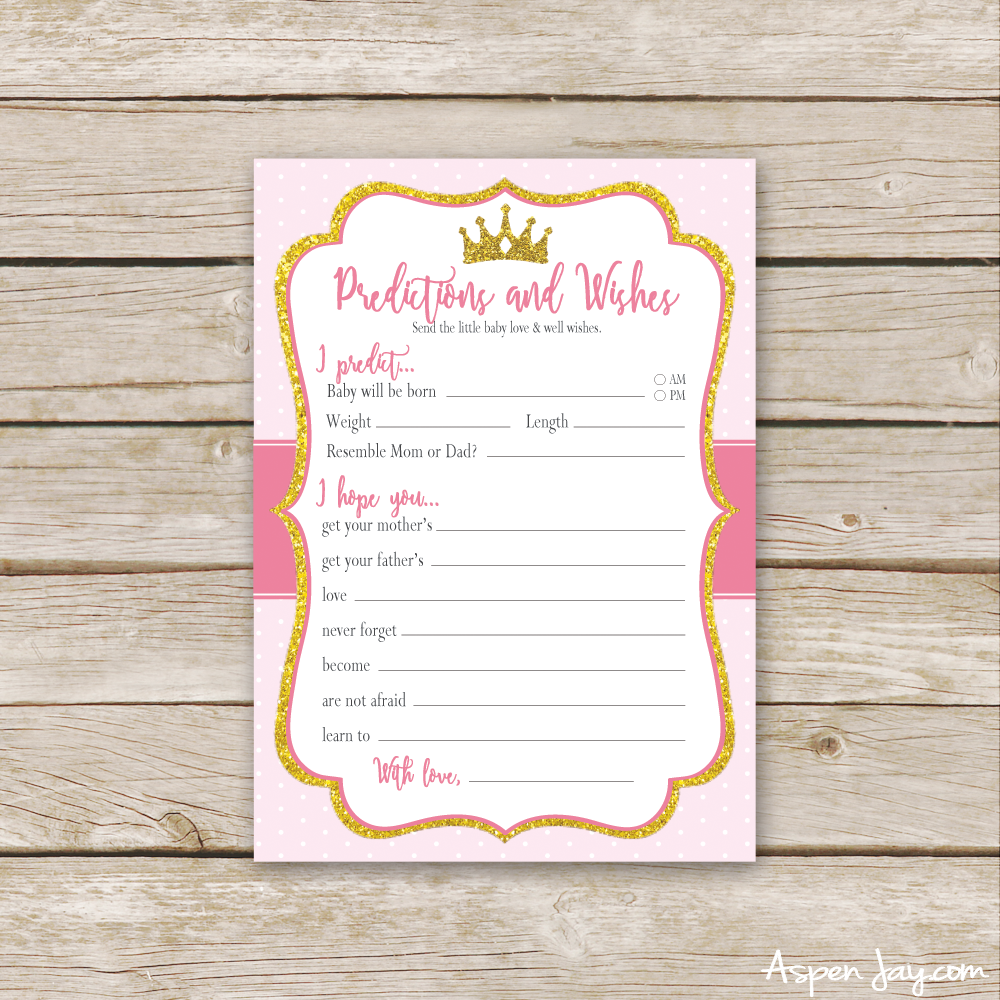 Predictions and Wishes
Send the little baby love & well wishes.
I predict...
Baby will be born AM
PM
Weight Length
Resemble Mom or Dad?
I hope you...
get your mother's
get your father's
love
never forget
become
are not afraid
learn to
With love,
Aspen Jay.com